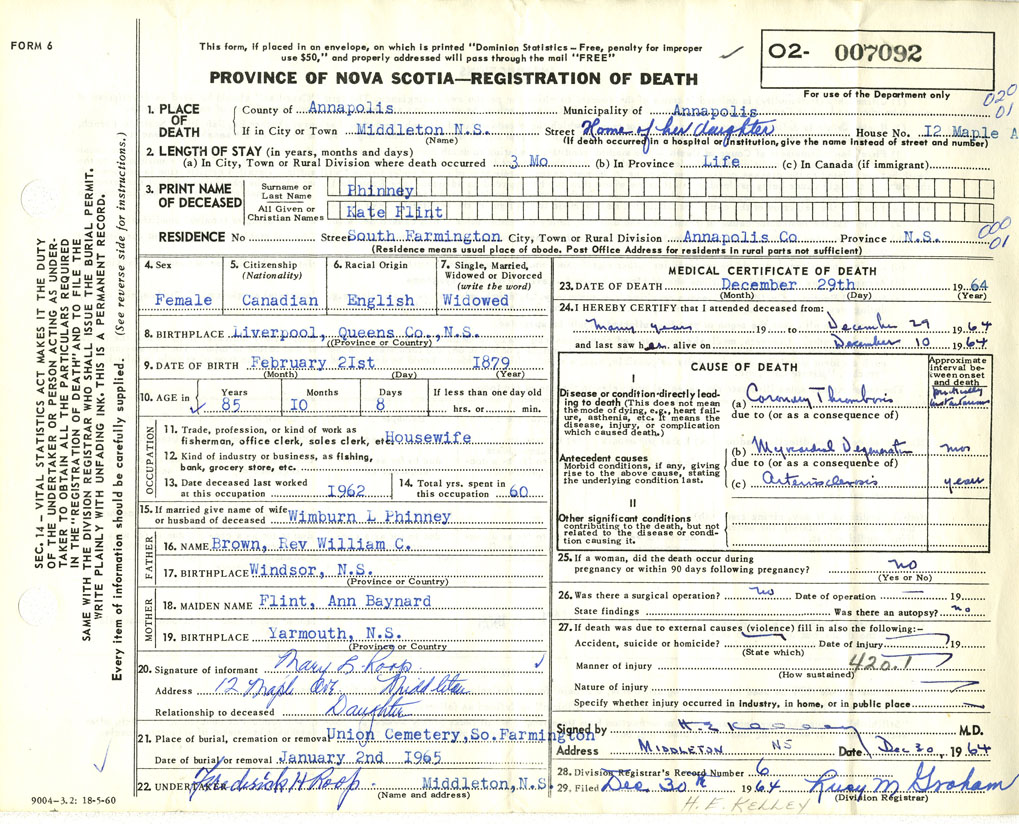 FORM 6
This form, if placed in an envelope, on which is printed "Dominion Statistics – Free, penalty for improper
use $50," and properly addressed will pass through the mail "FREE"
PROVINCE OF NOVA SCOTIA—REGISTRATION OF DEATH
O2- 007092
For use of the Department only
020
01
1. PLACE OF DEATH
County of Annapolis Municipality of Annapolis
If in City or Town Middleton N.S. Street Home of her daughter House No. I2 Maple A
(Name) (If death occurred in a hospital or institution, give the name instead of street and number)
2. LENGTH OF STAY (in years, months and days)
(a) In City, Town or Rural Division where death occurred 3 Mo (b) In Province Life (c) In Canada (if immigrant)
3. PRINT NAME OF DECEASED
Surname or Last Name Phinney
All Given or Christian Names Kate Flint
000
01
RESIDENCE No Street South Farmington City, Town or Rural Division Annapolis Co Province N.S.
(Residence means usual place of abode. Post Office Address for residents in rural parts not sufficient)
4. Sex Female
5. Citizenship (Nationality) Canadian
6. Racial Origin English
7. Single, Married, Widowed or Divorced (write the word) Widowed
8. BIRTHPLACE Liverpool, Queens Co., N.S.
((Province or Country)
9. DATE OF BIRTH February 2Ist 1879
(Month) (Day) (Year)
10. AGE in Years Months Days If less than one day old
85 IO 8 hrs. or min.
OCCUPATION
11. Trade, profession, or kind of work as
fisherman, office clerk, sales clerk, etc Housewife
12. Kind of industry or business, as fishing,
bank, grocery store, etc.
13. Date deceased last worked
at this occupation I962
14. Total yrs. spent in
this occupation 60
15. If married give name of wife
or husband of deceased Wimburn L Phinney
FATHER
16. NAME Brown, Rev William C.
17. BIRTHPLACE Windsor, N.S.
(Province or Country)
MOTHER
18. MAIDEN NAME Flint, Ann Baynard
19. BIRTHPLACE Yarmouth, N.S.
(Province or Country
20. Signature of informant Mary B Roop
Address 12 Maple Ave Middleton
Relationship to deceased Daughter
21. Place of burial, cremation or removal Union Cemetery, So. Farmington
Date of burial or removal January 2nd I965
22. UNDERTAKER Frederick H Roop Middleton, N.S.
(Name and address)
9004–3.2: 18-5-60
MEDICAL CERTIFICATE OF DEATH
23. DATE OF DEATH December 29th 19 64
(Month) (Day) (Year)
24. I HEREBY CERTIFY that I attended deceased from:
many years 19 to December 29 19 64
and last saw her alive on December 10 19 64
CAUSE OF DEATH
Approximate interval between onset and death
I
Disease or condition directly leading to death (This does not mean the mode of dying, e.g., heart failure, asthenia, etc. It means the disease, injury, or complication which caused death.)
(a) Coronary Thrombosis practically instantaneous
due to (or as a consequence of)
Antecedent causes
Morbid conditions, if any, giving rise to the above cause, stating the underlying condition last.
(b) Myocardial Degeneration mos
due to (or as a consequence of)
(c) Arteriosclerosis years
II
Other significant conditions
contributing to the death, but not related to the disease or condition causing it.
25. If a woman, did the death occur during
pregnancy or within 90 days following pregnancy? no
(Yes or No)
26. Was there a surgical operation? no Date of operation — 19
State findings Was there an autopsy? no
27. If death was due to external causes (violence) fill in also the following:–
Accident, suicide or homicide? Date of injury 19
(State which)
Manner of injury 420.1
(How sustained)
Nature of injury
Specify whether injury occurred in industry, in home, or in public place
Signed by H E Kelley M.D.
Address MIDDLETON NS Date Dec 30, 19 64
28. Division Registrar's Record Number 6
29. Filed Dec 30th 19 64 Lucy M Graham
(Division Registrar)
H. E. KELLEY
SEC. 14 – VITAL STATISTICS ACT MAKES IT THE DUTY
OF THE UNDERTAKER OR PERSON ACTING AS UNDER-
TAKER TO OBTAIN ALL THE PARTICULARS REQUIRED
IN THE "REGISTRATION OF DEATH" AND TO FILE THE
SAME WITH THE DIVISION REGISTRAR WHO SHALL ISSUE THE BURIAL PERMIT.
WRITE PLAINLY WITH UNFADING INK. THIS IS A PERMANENT RECORD.
Every item of information should be carefully supplied. (See reverse side for instructions.)